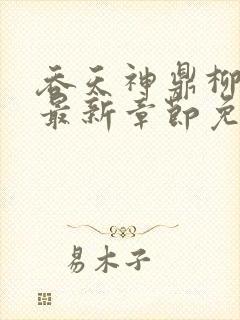 吞天神鼎柳
最新章節免
易木子